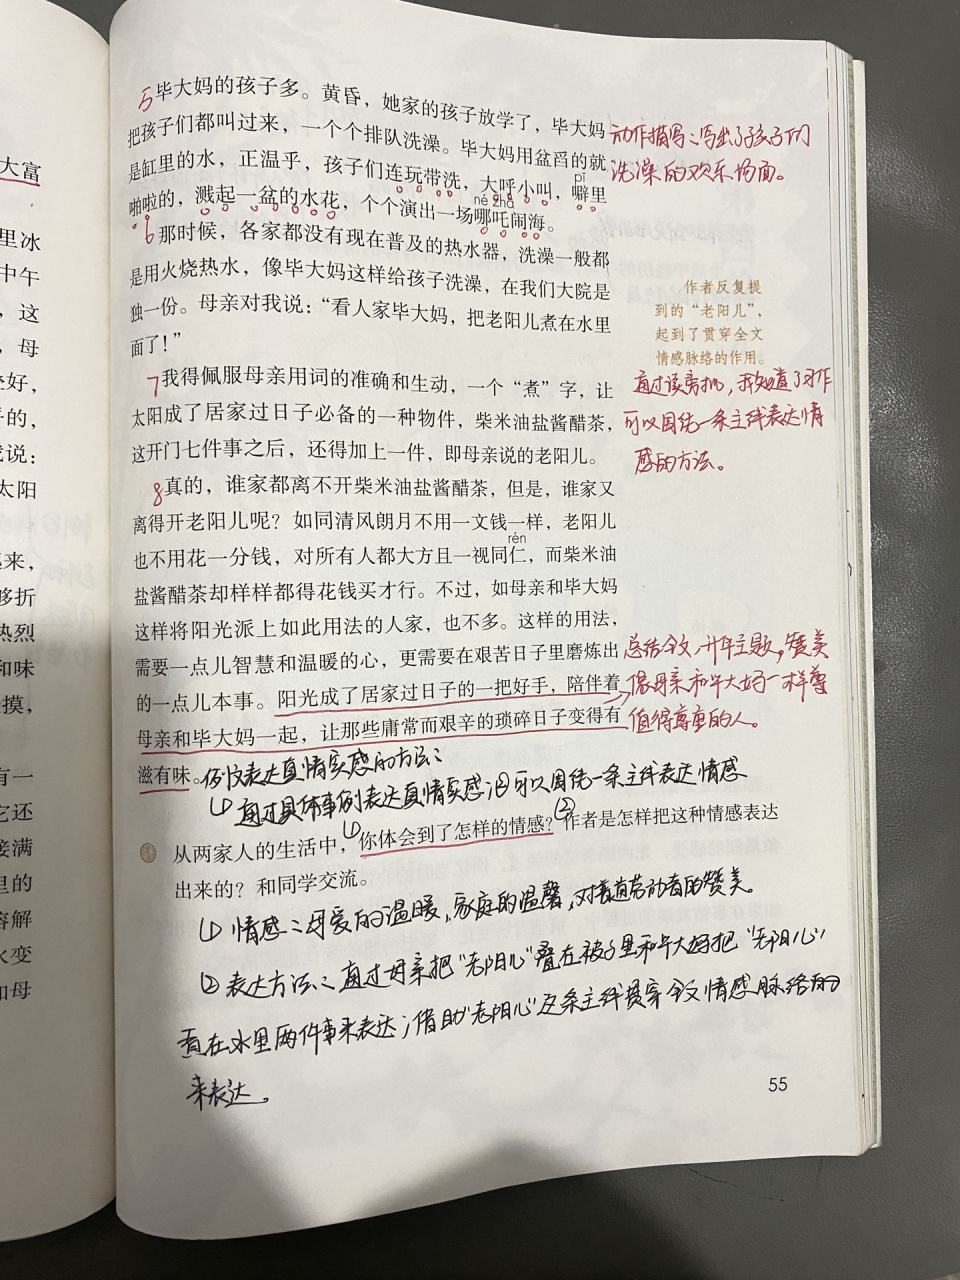 大富
里冰
中午
，这
，母
处好，
平的，
我说：
太阳
起来，
够折
热烈
和味
摸，
有一
它还
接满
里的
溶解
火变
和母
5 毕大妈的孩子多。黄昏，她家的孩子放学了，毕大妈
把孩子们都叫过来，一个个排队洗澡。毕大妈用盆舀的就
是缸里的水，正温乎，孩子们连玩带洗，大呼小叫，噼里
pī
啪啦的，溅起一盆的水花，个个演出一场哪吒闹海。
né zhā
动作描写：写出了孩子们
洗澡的欢乐场面。
6 那时候，各家都没有现在普及的热水器，洗澡一般都
是用火烧热水，像毕大妈这样给孩子洗澡，在我们大院是
独一份。母亲对我说：“看人家毕大妈，把老阳儿煮在水里
面了！”
作者反复提
到的“老阳儿”，
起到了贯穿全文
情感脉络的作用。
7 我得佩服母亲用词的准确和生动，一个“煮”字，让
太阳成了居家过日子必备的一种物件，柴米油盐酱醋茶，
这开门七件事之后，还得加上一件，即母亲说的老阳儿。
通过读旁批，我知道了习作
可以围绕一条主线表达情
感的方法。
8 真的，谁家都离不开柴米油盐酱醋茶，但是，谁家又
离得开老阳儿呢？如同清风朗月不用一文钱一样，老阳儿
rén
也不用花一分钱，对所有人都大方且一视同仁，而柴米油
盐酱醋茶却样样都得花钱买才行。不过，如母亲和毕大妈
这样将阳光派上如此用法的人家，也不多。这样的用法，
需要一点儿智慧和温暖的心，更需要在艰苦日子里磨炼出
的一点儿本事。阳光成了居家过日子的一把好手，陪伴着
母亲和毕大妈一起，让那些庸常而艰辛的琐碎日子变得有
滋有味。
总结全文，升华主题，赞美
像母亲和毕大妈一样
值得尊重的人。
仿仪表达真情实感的方法：
① 通过具体事例表达真情实感；②可以围绕一条主线表达情感
从两家人的生活中，①你体会到了怎样的情感？②作者是怎样把这种情感表达
出来的？和同学交流。
① 情感：母爱的温暖，家庭的温馨，对普通劳动者的赞美。
② 表达方法：通过母亲把“老阳儿”叠在被子里和毕大妈把“老阳儿”
煮在水里两件事来表达；借助“老阳儿”这条主线贯穿全文情感脉络的
来表达。
55